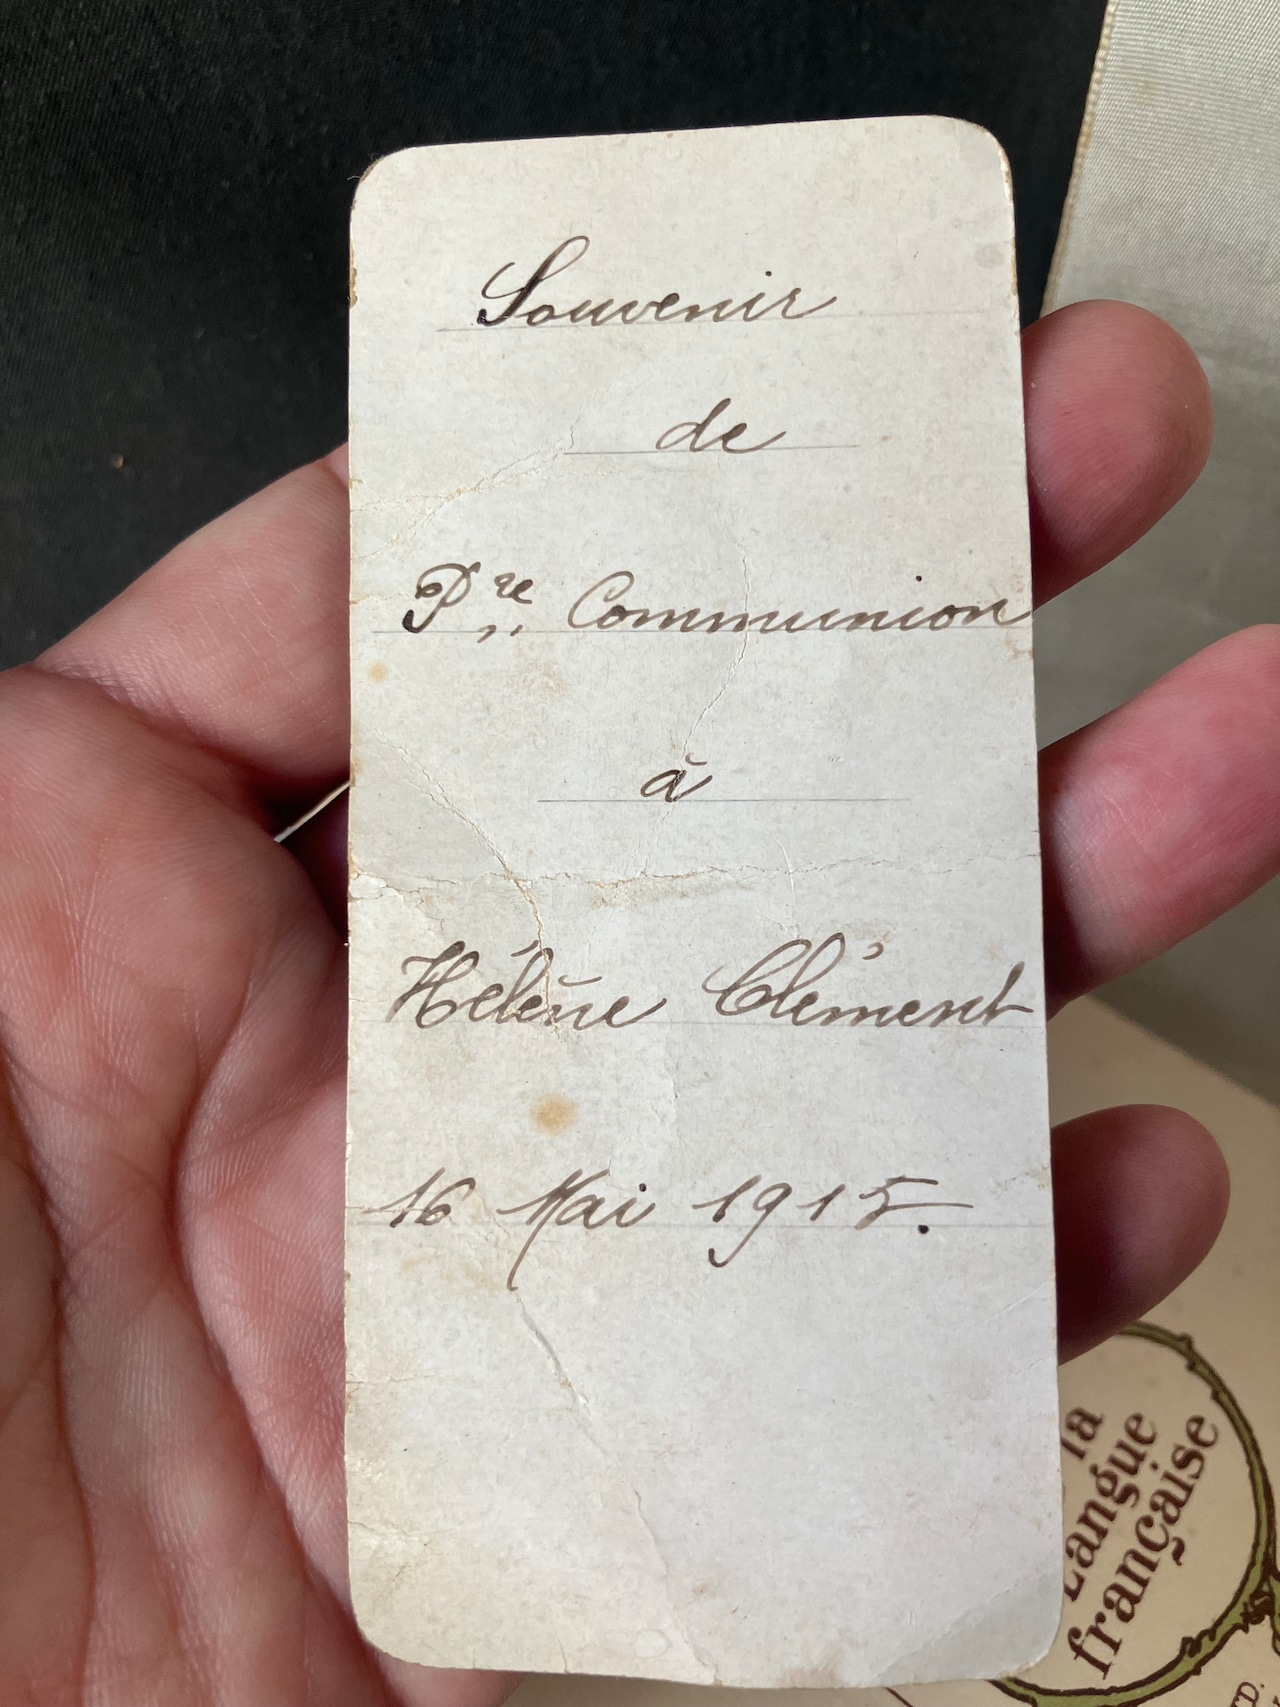 Souvenir
de
Pre Communion
à
Hélène Clément
16 Mai 1915.
la
Langue
française